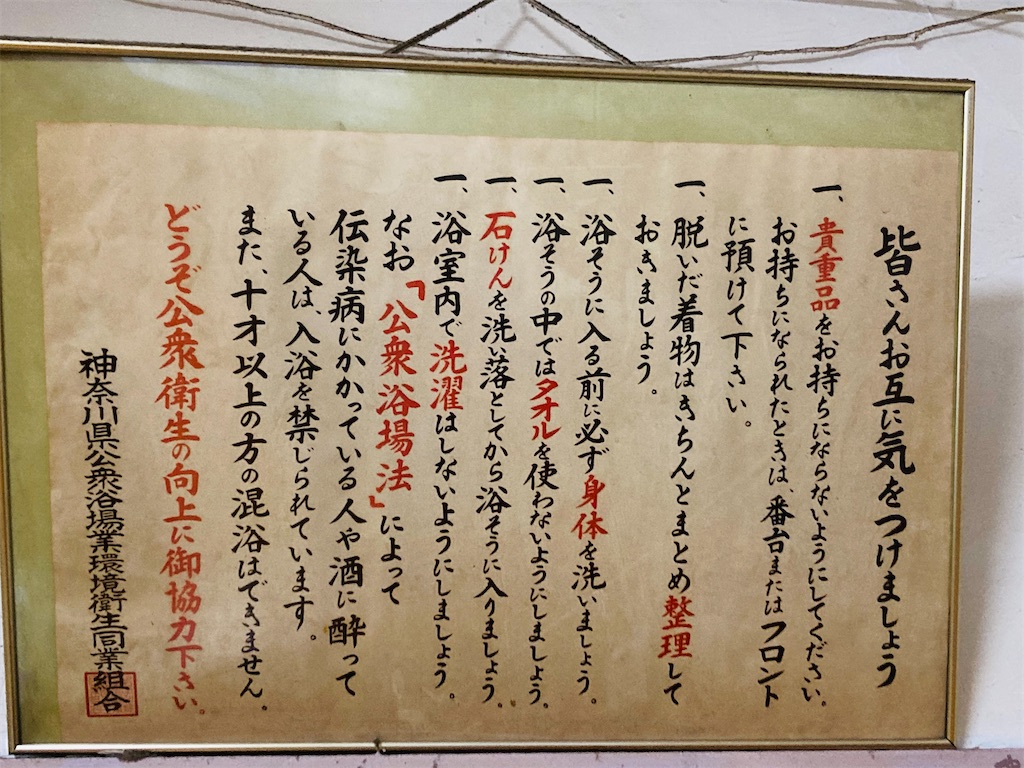 皆さんお互に気をつけましょう
一、貴重品をお持ちにならないようにしてください。
お持ちになられたときは、番台またはフロント
に預けて下さい。
一、脱いだ着物はきちんとまとめ整理して
おきましょう。
一、浴そうに入る前に必ず身体を洗いましょう。
一、浴そうの中ではタオルを使わないようにしましょう。
一、石けんを洗い落としてから浴そうに入りましょう。
一、浴室内で洗濯はしないようにしましょう。
なお「公衆浴場法」によって
伝染病にかかっている人や酒に酔って
いる人は、入浴を禁じられています。
また、十才以上の方の混浴はできません。
どうぞ公衆衛生の向上に御協力下さい。
神奈川県公衆浴場業環境衛生同業組合